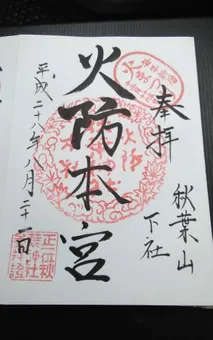 奉拝
秋葉山
下社
火防本宮
平成二十八年八月二十一日
正一位秋
葉神社